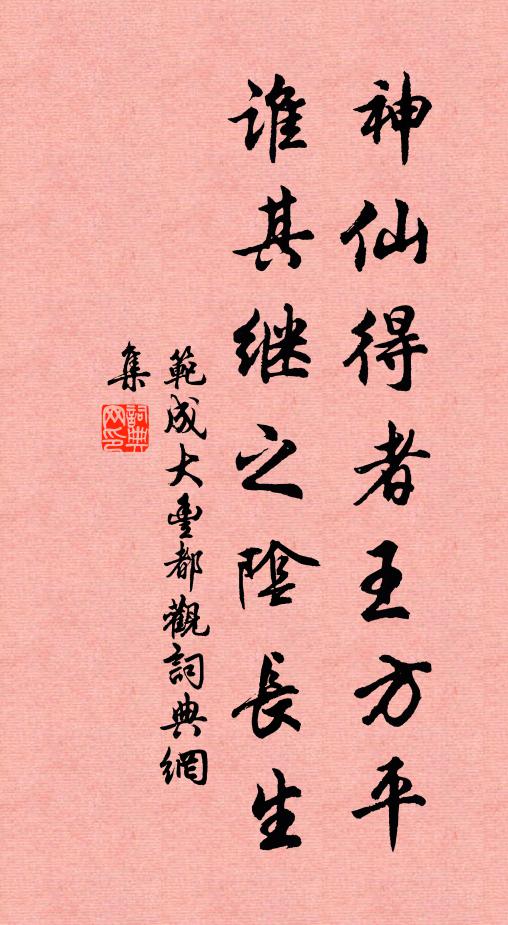 神仙得者王方平
谁其继之陰長生
範成大豐都觀詞典網
集
詞典
网印